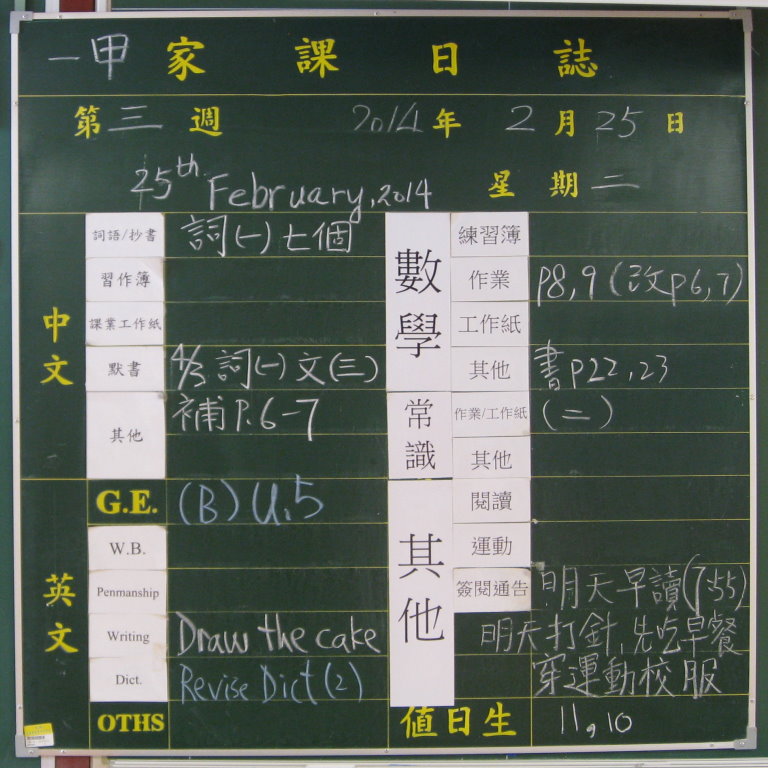 一甲 家課日誌
第三週 2014年 2月25日
25th February, 2014 星期二
中文
詞語/抄書 詞(一)七個
習作簿
課業工作紙
默書 4/3 詞(一)文(三)
其他 補P.6-7
英文
G.E. (B) U.5
W.B.
Penmanship
Writing Draw the cake
Dict. Revise Dict (2)
OTHS
數學
練習簿
作業 P8,9 (改P6,7)
工作紙
其他 書P22,23
常識
作業/工作紙 (二)
其他
其他
閱讀
運動
簽閱通告 明天早讀(7:55)
明天打針,先吃早餐
穿運動校服
值日生 11,10